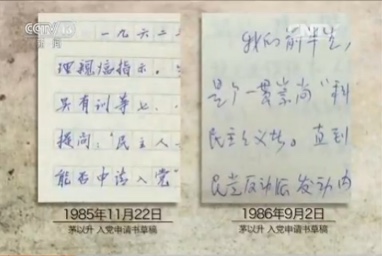 CCTV
一九六二
理魏癌指示，
具有训导七、
提问：“民主人
能否申请入党”
1985年11月22日
茅以升 入党申请书草稿
我的前半生，
是个一贯崇尚“科
民主主义者。直到
民党反动派发动内
1986年9月2日
茅以升 入党申请书草稿